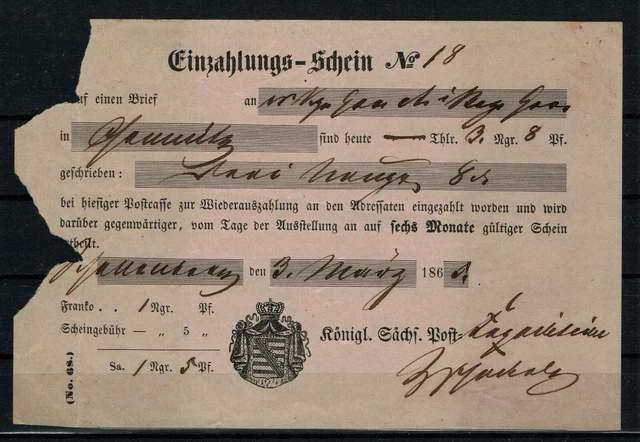 Einzahlungs-Schein № 18
auf einen Brief an
in Chemnitz sind heute — Thlr. 3 Ngr. 8 Pf.
geschrieben: Drei Neugr 8 d
bei hiesiger Postcasse zur Wiederauszahlung an den Adressaten eingezahlt worden und wird
darüber gegenwärtiger, vom Tage der Ausstellung an auf sechs Monate gültiger Schein
ertheilt.
Schellenberg den 3. März 186
Franko . . 1 Ngr. Pf.
Scheingebühr — „ 5 „
Königl. Sächs. Post-Expedition
Sa. 1 Ngr. 5 Pf.
(No. 68.)